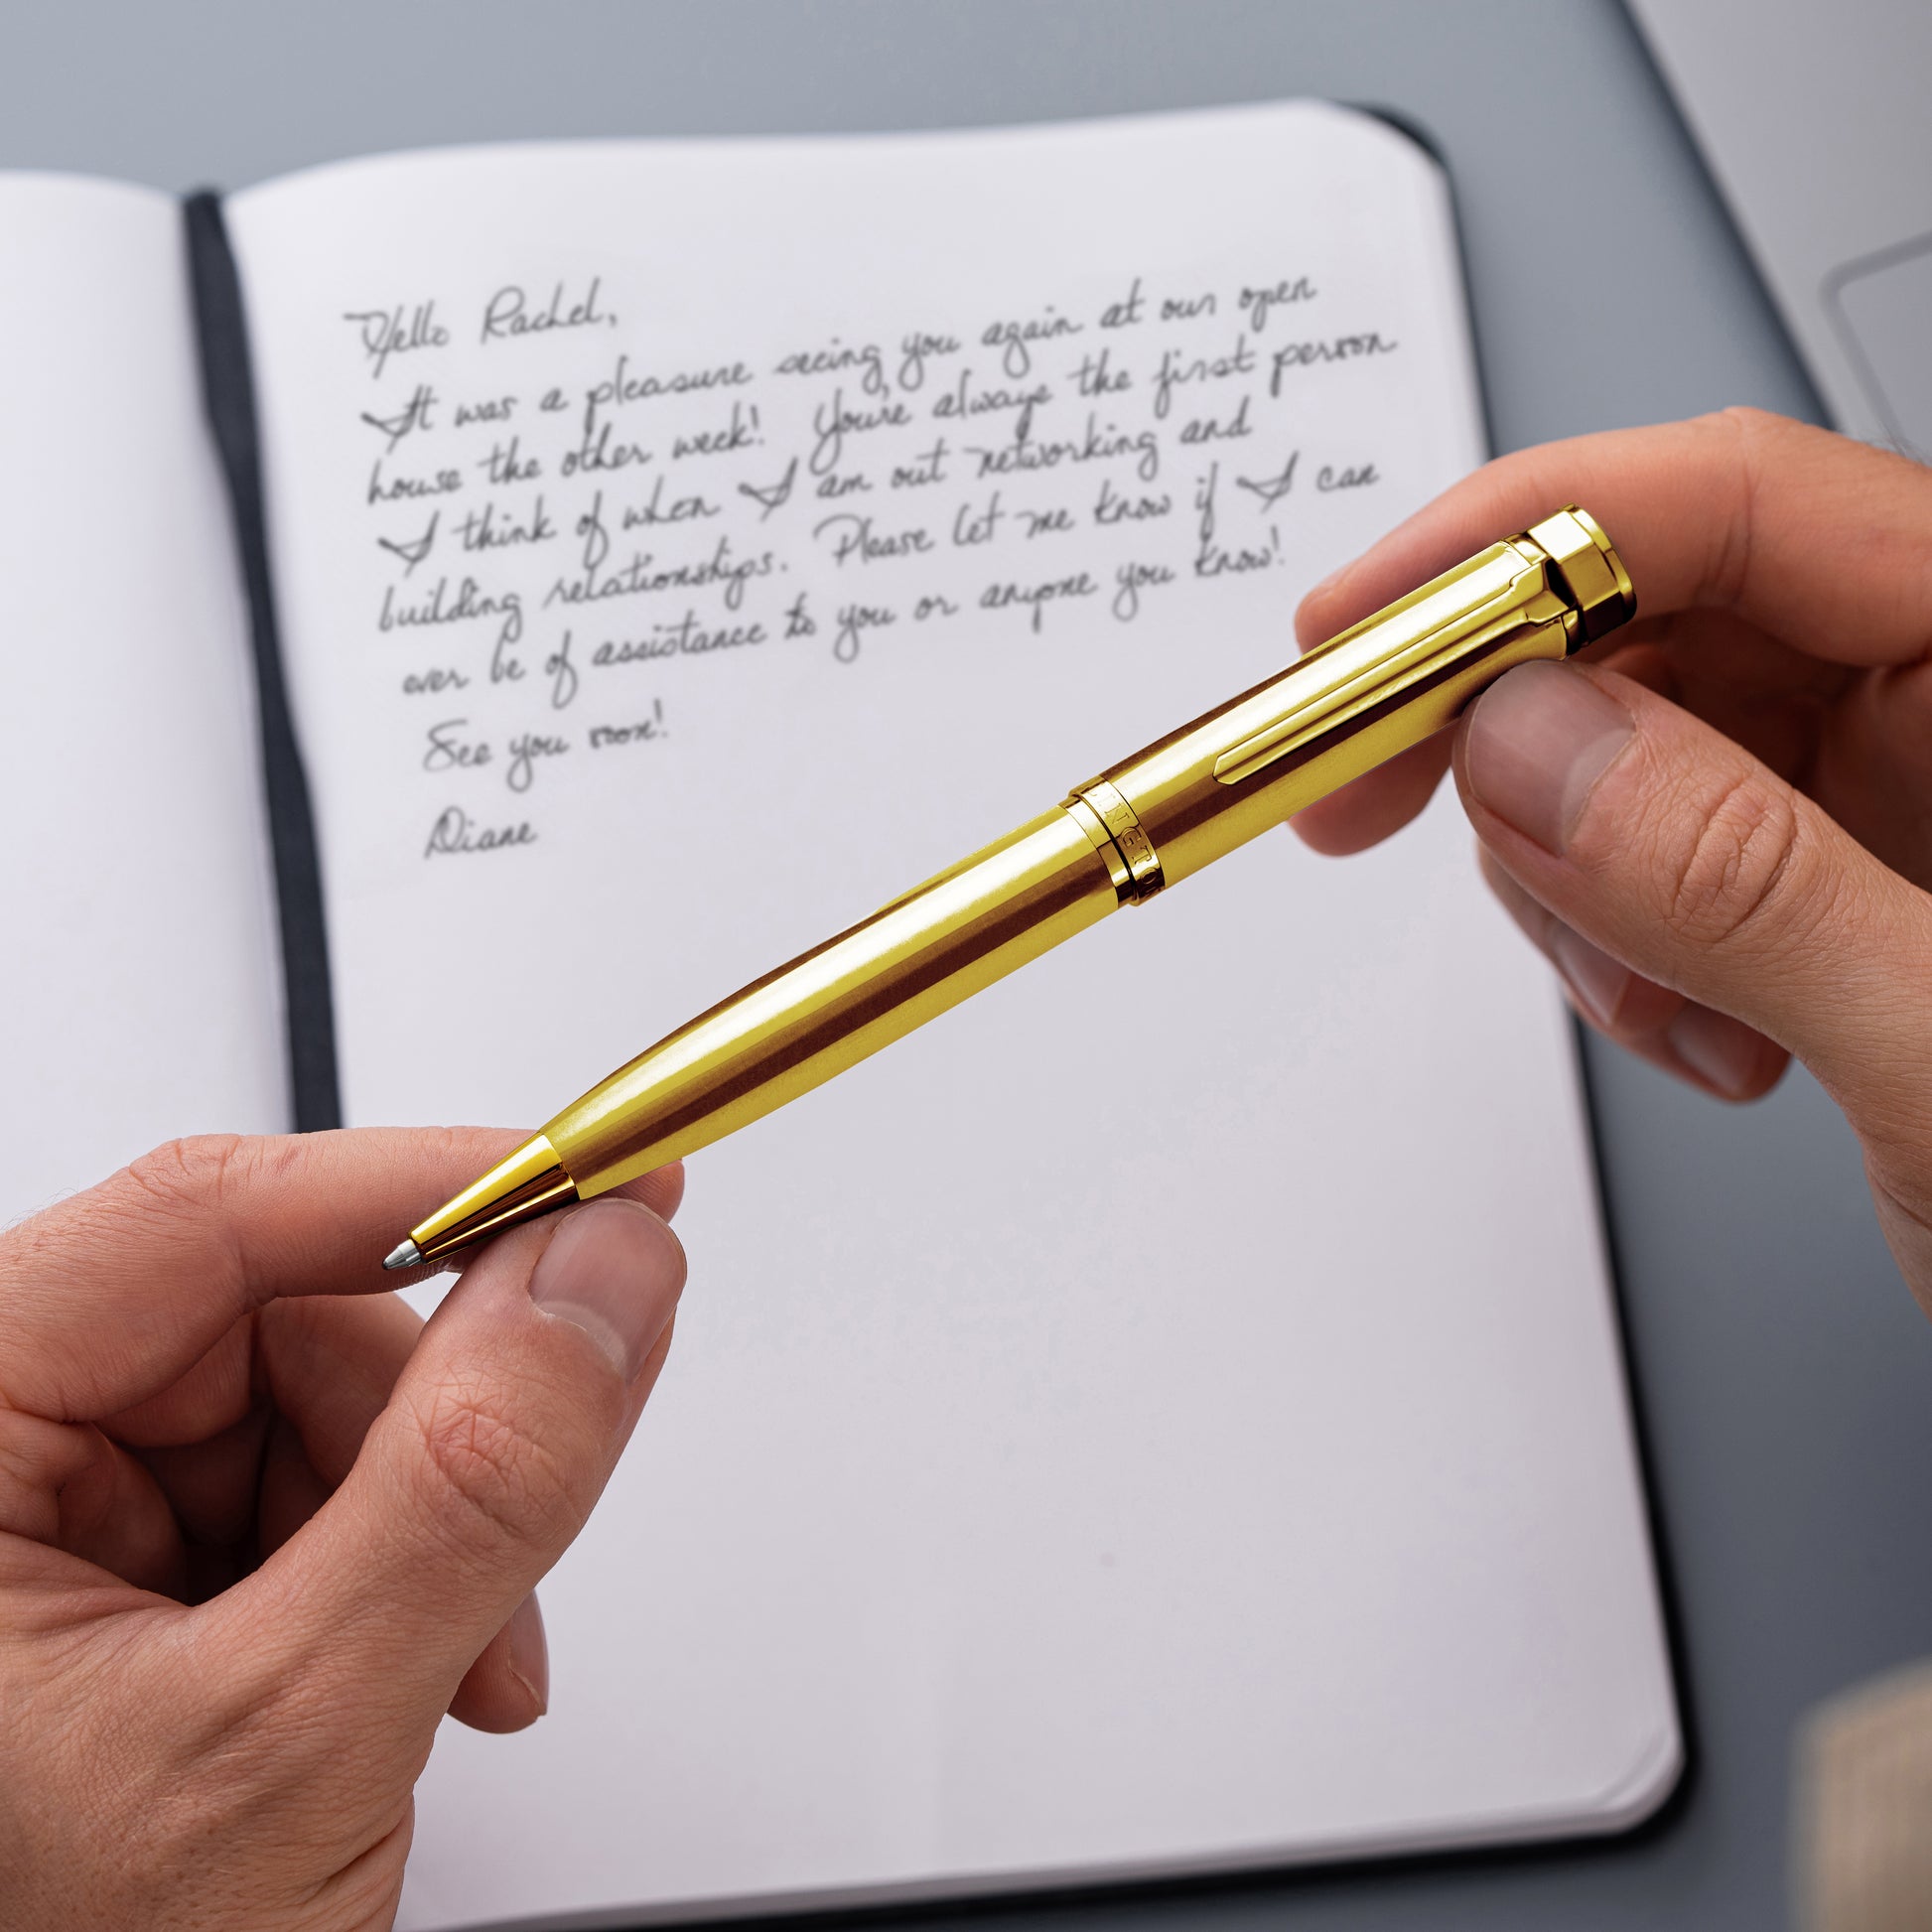 Hello Rachel,
It was a pleasure seeing you again at our open
house the other week! You're always the first person
I think of when I am out networking and
building relationships. Please let me know if I can
ever be of assistance to you or anyone you know!
See you soon!
Diane
LINGTO